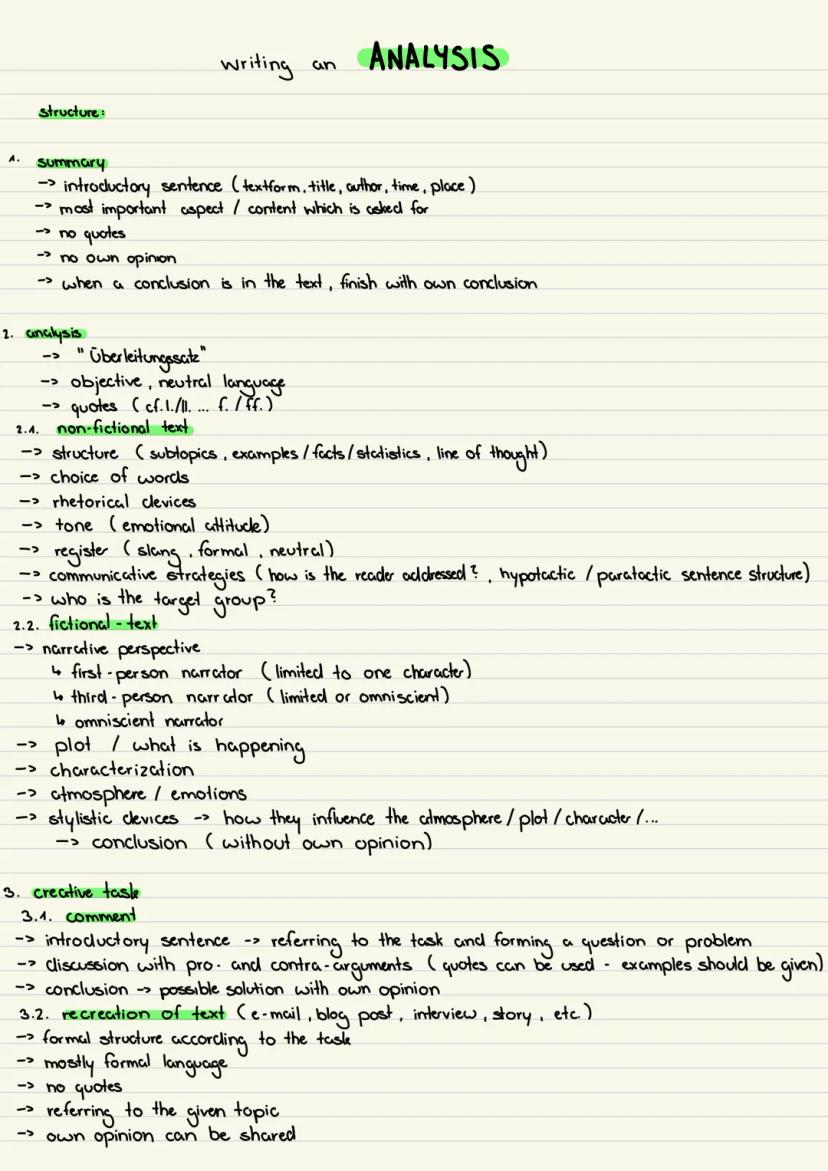 writing an ANALYSIS
structure:
1. summary
-> introductory sentence (textform, title, author, time, place)
-> most important aspect / content which is asked for
-> no quotes
-> no own opinion
-> when a conclusion is in the text, finish with own conclusion
2. analysis
-> "Überleitungssatz"
-> objective, neutral language
-> quotes (cf. l./ll. ... f. / ff.)
2.1. non-fictional text
-> structure (subtopics, examples / facts / statistics, line of thought)
-> choice of words
-> rhetorical devices
-> tone (emotional attitude)
-> register (slang, formal, neutral)
-> communicative strategies (how is the reader addressed?, hypotactic / paratactic sentence structure)
-> who is the target group?
2.2. fictional-text
-> narrative perspective
↳ first-person narrator (limited to one character)
↳ third-person narrator (limited or omniscient)
↳ omniscient narrator
-> plot / what is happening
-> characterization
-> atmosphere / emotions
-> stylistic devices -> how they influence the atmosphere / plot / character /...
-> conclusion (without own opinion)
3. creative task
3.1. comment
-> introductory sentence -> referring to the task and forming a question or problem
-> discussion with pro- and contra-arguments (quotes can be used - examples should be given)
-> conclusion -> possible solution with own opinion
3.2. recreation of text (e-mail, blog post, interview, story, etc.)
-> formal structure according to the task
-> mostly formal language
-> no quotes
-> referring to the given topic
-> own opinion can be shared